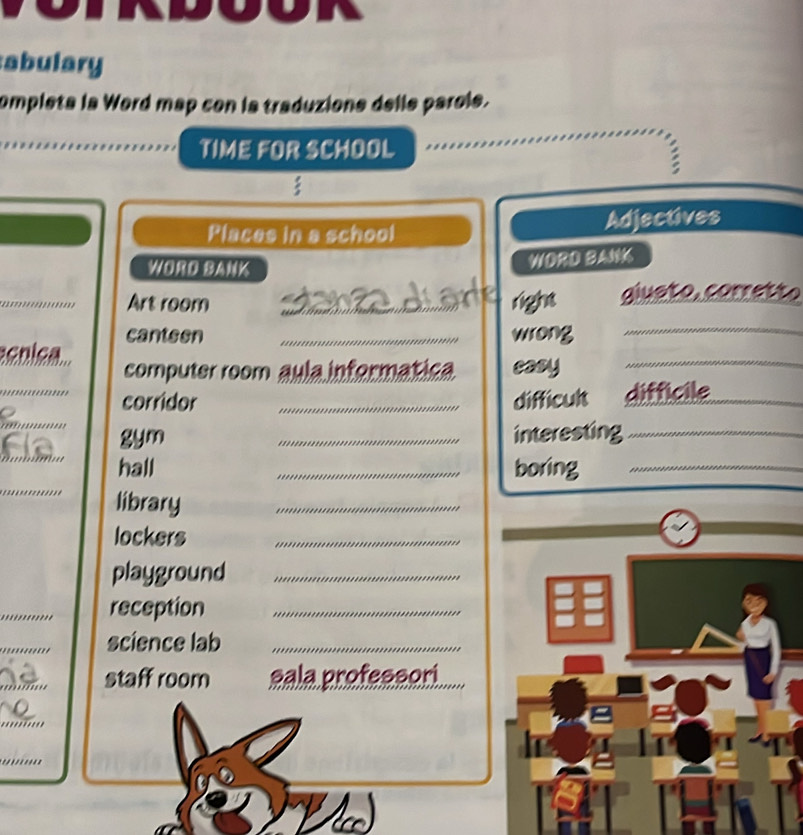 WORKBOOK
abulary
ompleta la Word map con la traduzione delle parole.
TIME FOR SCHOOL
Places in a school
WORD BANK
Art room stanza di arte
canteen
computer room aula informatica
corridor
gym
hall
library
lockers
playground
reception
science lab
staff room sala professori
Adjectives
WORD BANK
right giusto, corretto
wrong
easy
difficult difficile
interesting
boring